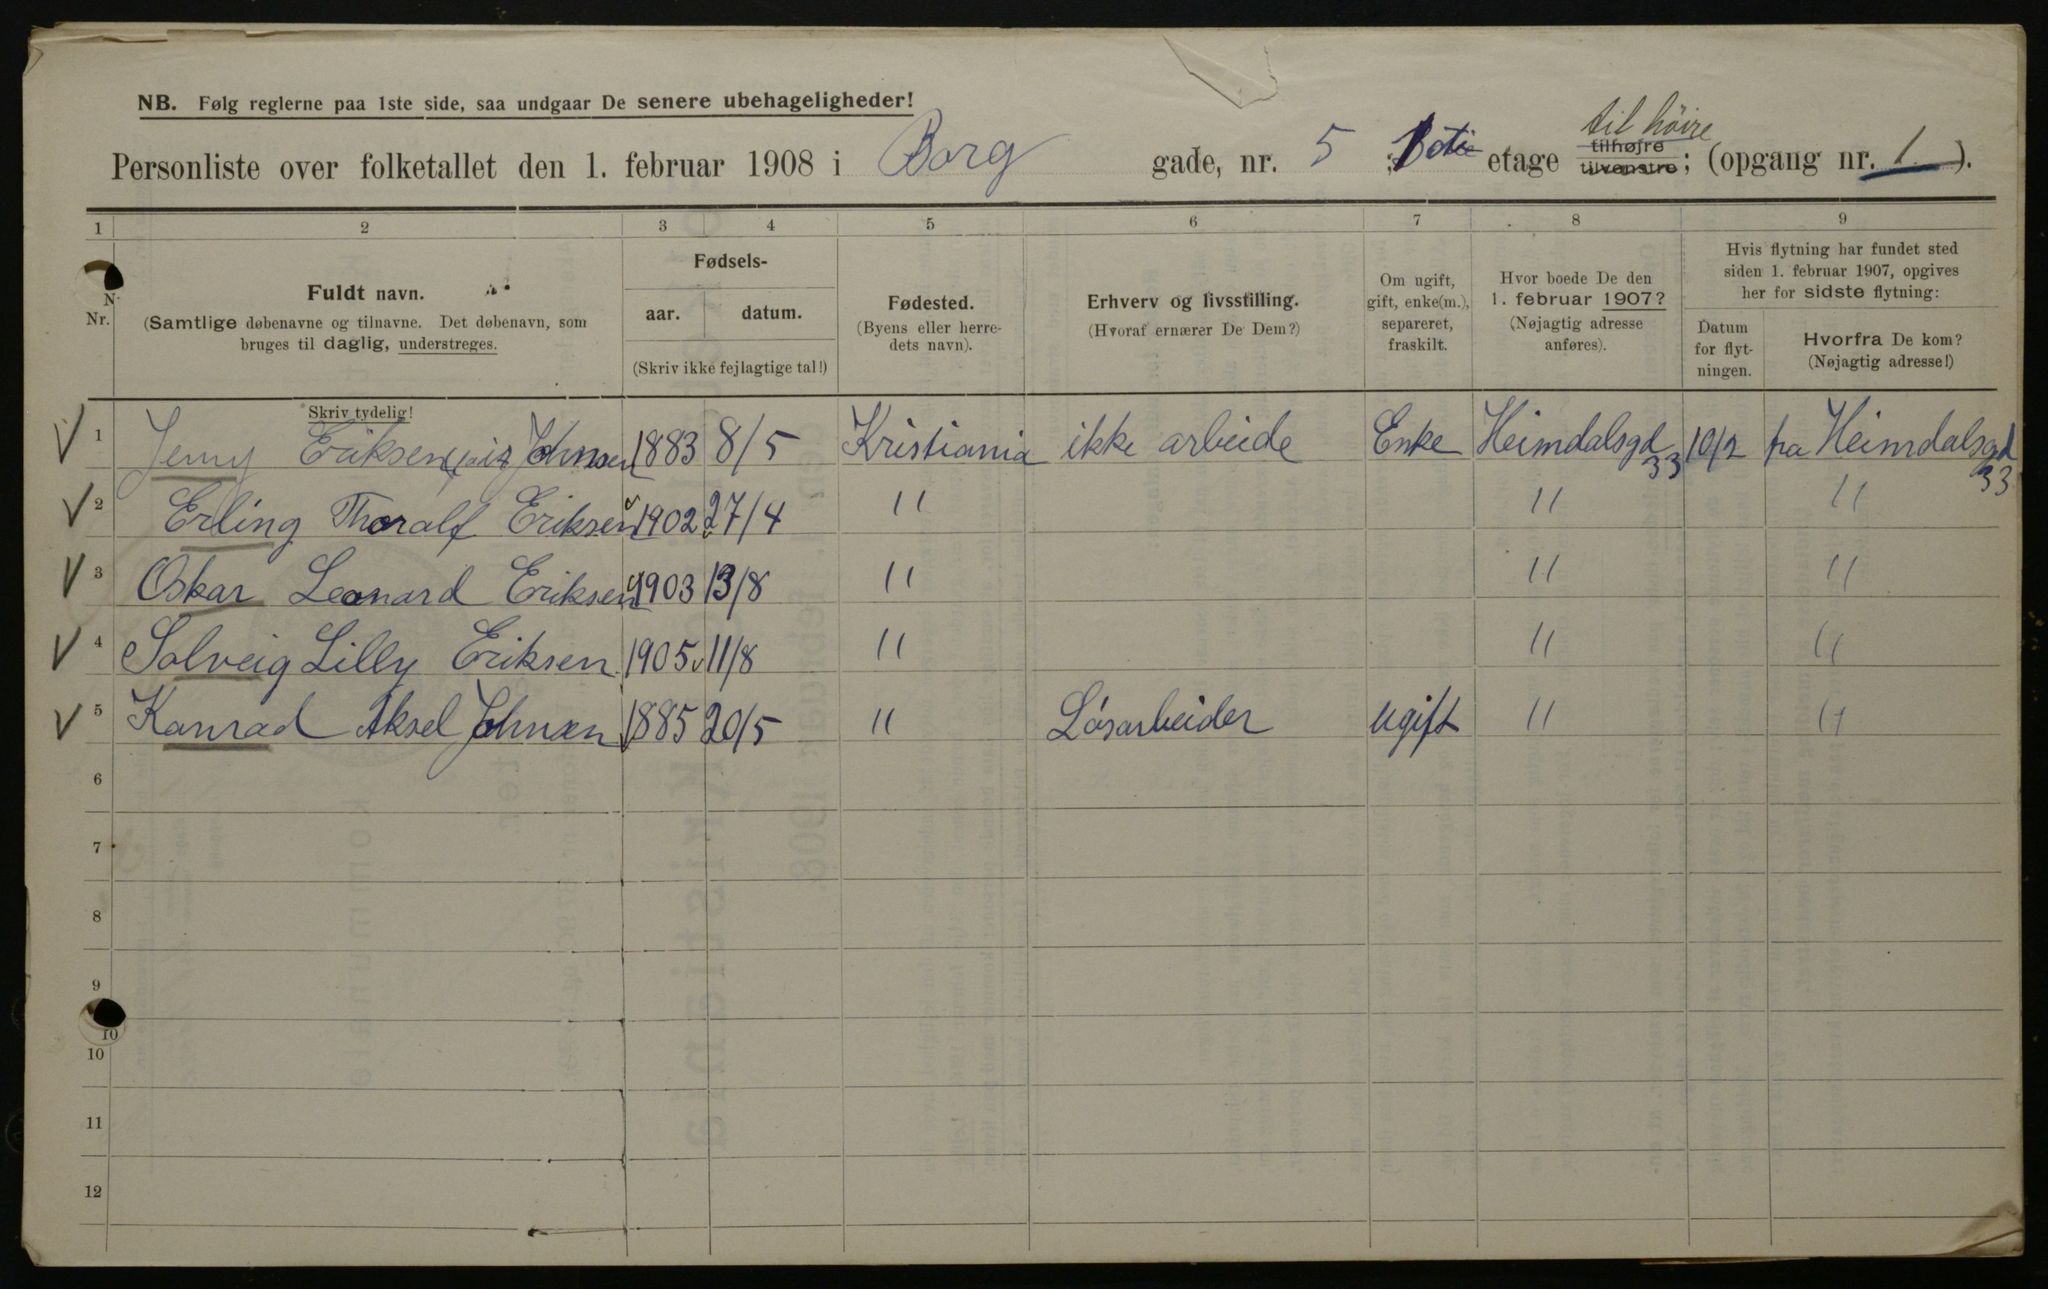 NB. Følg reglerne paa 1ste side, saa undgaar De senere ubehageligheder!
til höire
Personliste over folketallet den 1. februar 1908 i Borg gade, nr. 5; 1 etage tilhøjre tilvenstre; (opgang nr. 1).
1 2 3 4 5 6 7 8 9
Nr.
Fuldt navn.
(Samtlige døbenavne og tilnavne. Det døbenavn, som
bruges til daglig, understreges.
Skriv tydelig!
Fødsels-
aar. datum.
(Skriv ikke fejlagtige tal!)
Fødested.
(Byens eller herre-
dets navn).
Erhverv og livsstilling.
(Hvoraf ernærer De Dem?)
Om ugift,
gift, enke(m.),
separeret,
fraskilt.
Hvor boede De den
1. februar 1907?
(Nøjagtig adresse
anføres).
Hvis flytning har fundet sted
siden 1. februar 1907, opgives
her for sidste flytning:
Datum
for flyt-
ningen.
Hvorfra De kom?
(Nøjagtig adresse!)
1 Jenny Eriksen Johnsen 1883 8/5 Kristiania ikke arbeide Enke Heimdalsgd 33 10/2 fra Heimdalsgd 33
2 Erling Thoralf Eriksen 1902 27/4 " " "
3 Oskar Leonard Eriksen 1903 13/8 " " "
4 Solveig Lilly Eriksen 1905 11/8 " " "
5 Konrad Aksel Johnsen 1885 20/5 " Løsarbeider ugift " "
6
7
8
9
10
10
11
12